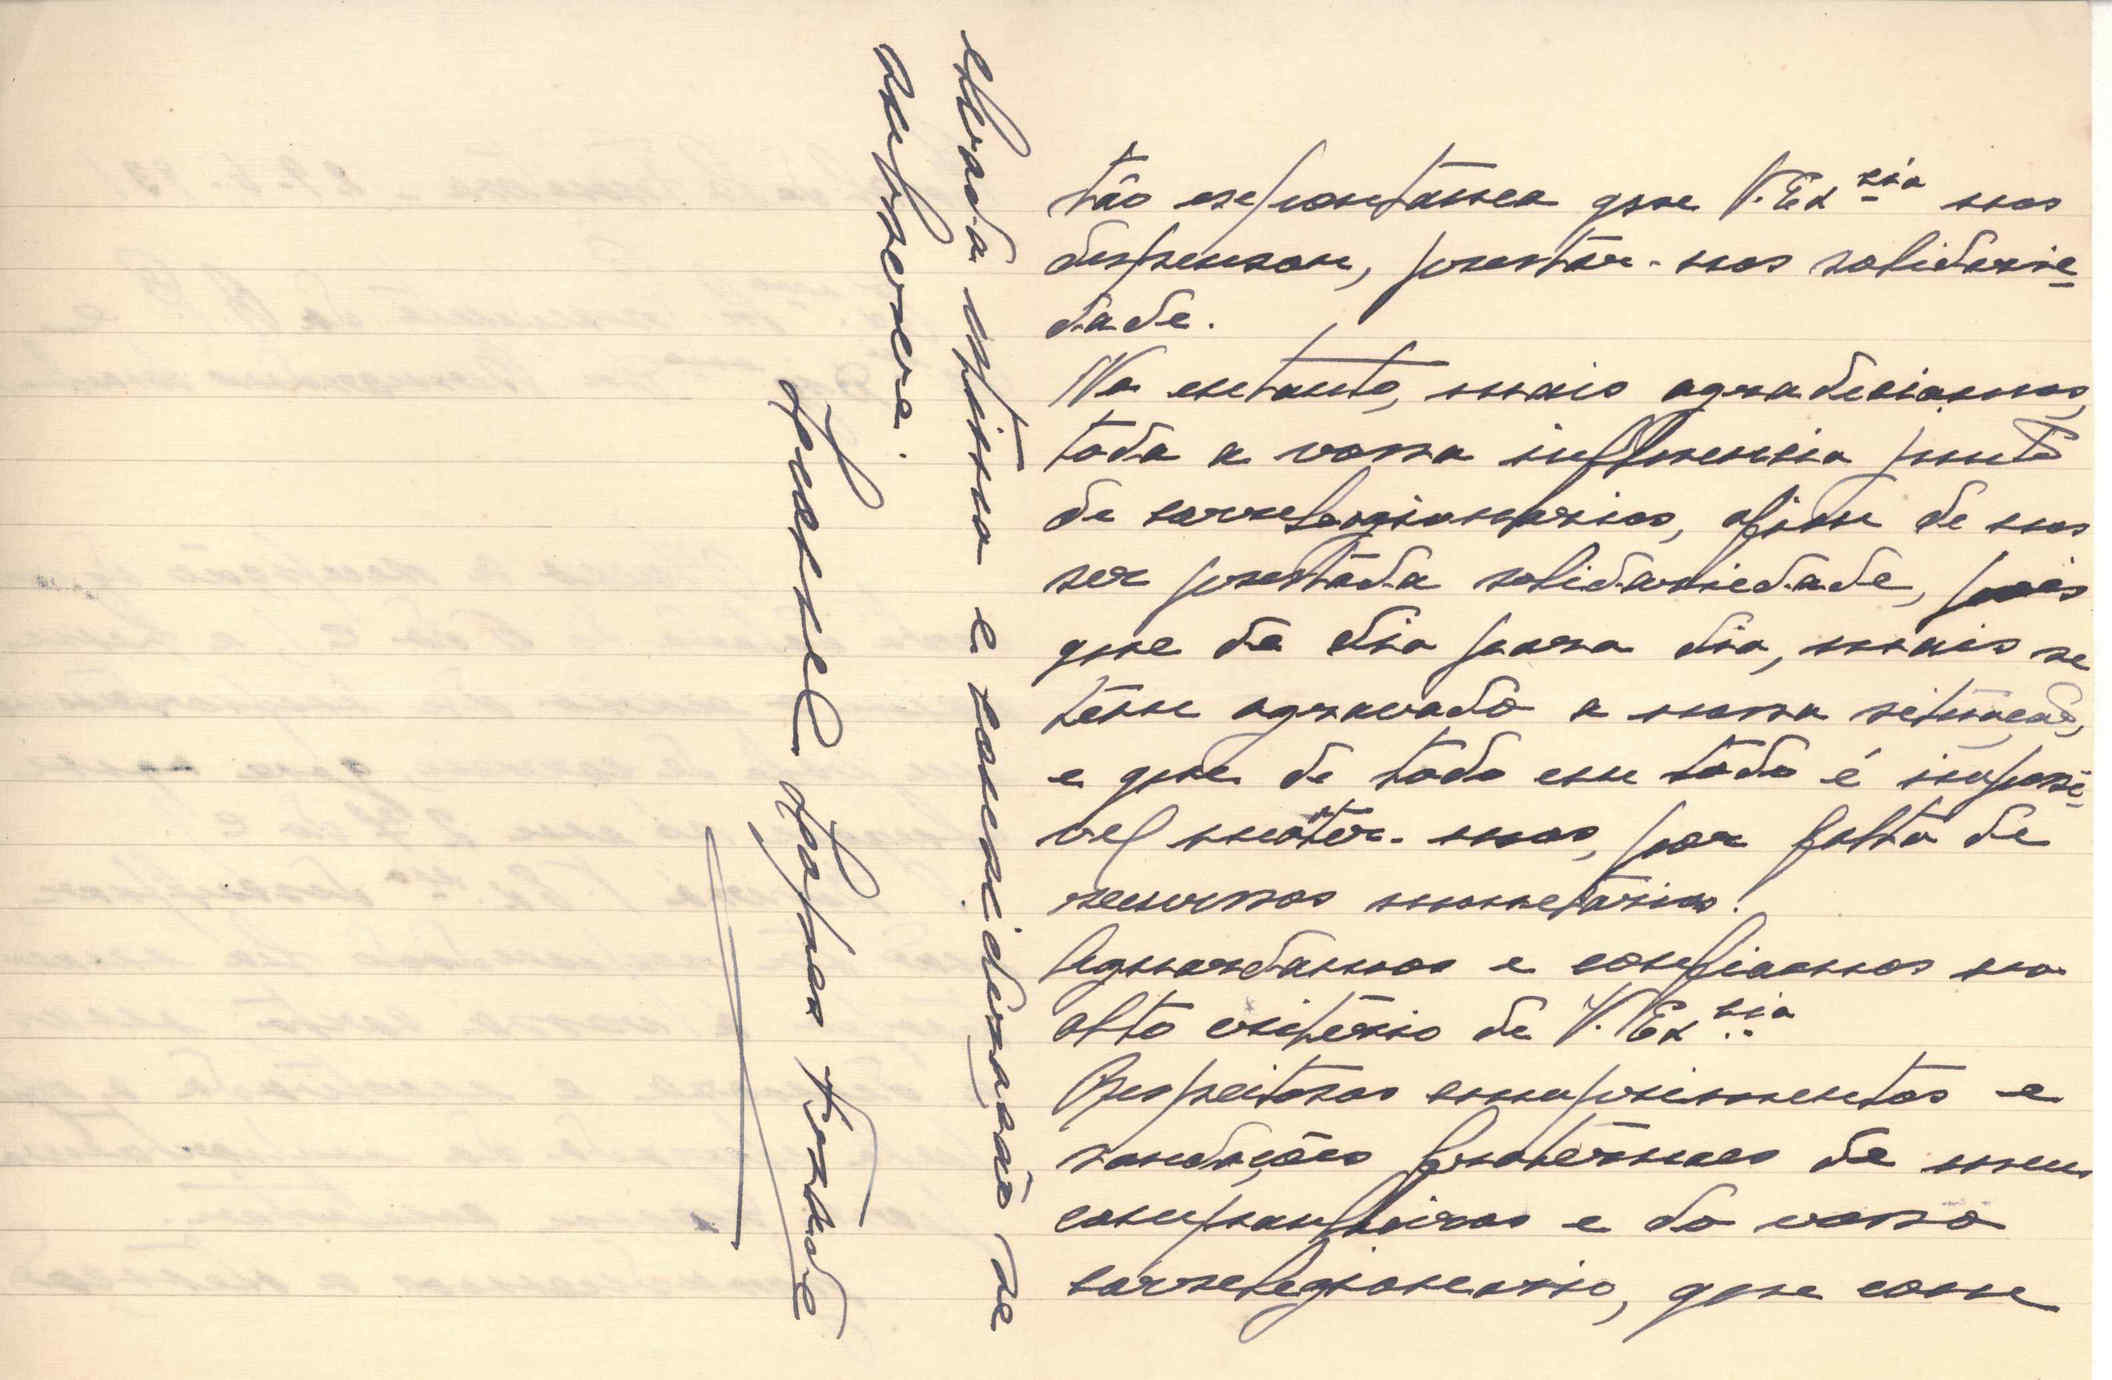 tão espontanea que V. Ex.cia nos
dispensou, prestár-nos solidarie-
dade.
No entanto, mais agradeciamos,
toda a vossa influencia junto
de correlegionarios, afim de nos
ser prestáda solidariedade, pois
que de dia para dia, mais se
tem agravado a nossa situação,
e que de todo em todo é impossi-
vel metêr-nos, por falta de
recursos monetarios!
Aguardamos e confiamos no
alto critério de V. Ex.cia
Respeitosos cumprimentos e
saudações fratérnaes de meus
companheiros e do vosso
correlegionario, que com
elevada estima e consideração se
subscreve.
Lopes Trindade